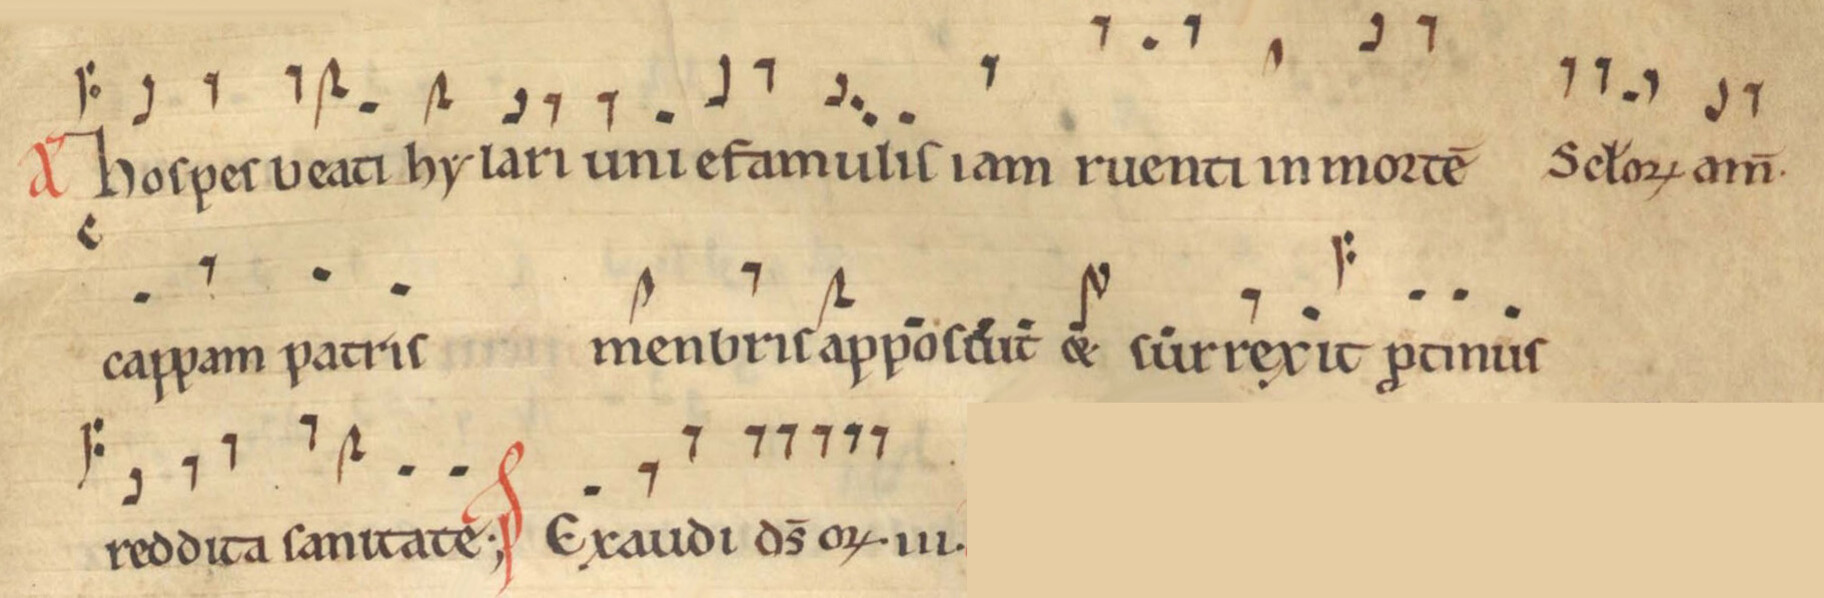 A hospes veati hylari uni e famulis iam ruenti in mortē Scłoꝝ am̄.
cappam patris menbris apposuit & surrexit ꝓtinus
reddita sanitate; P Exaudi ds̄ oꝝ. iii.